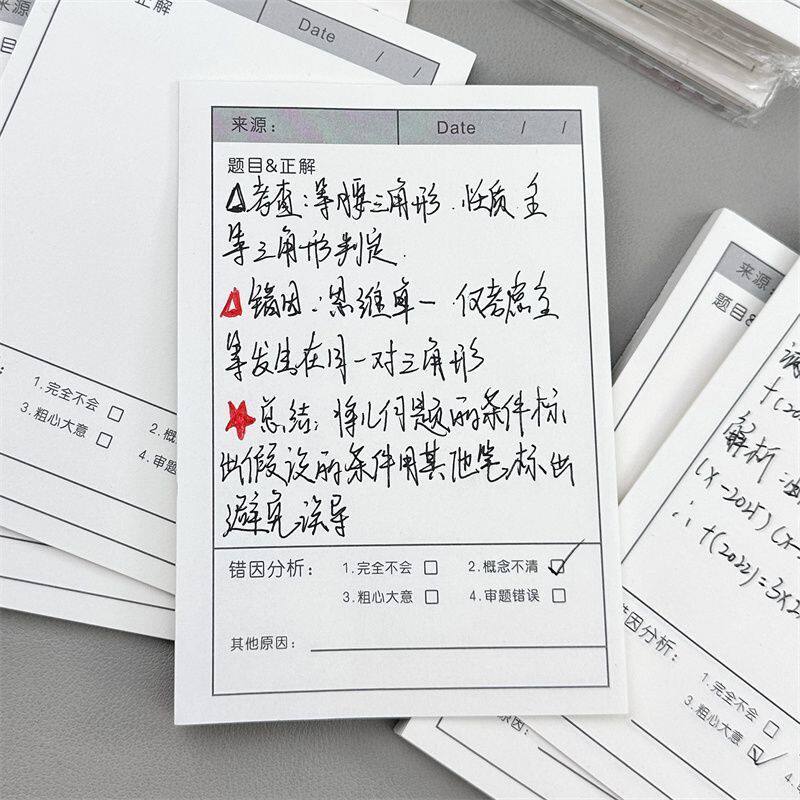 正解
Date / /
1.完全不会
3.粗心大意
4.审题
来源：
Date / /
题目&正解
考查：等腰三角形.性质 全
等三角形判定.
错因：思维单一 仅考虑全
等发生在同一对三角形
总结：将几何题的条件标
出假设的条件用其他笔标出
避免误导
错因分析：
1.完全不会 2.概念不清
3.粗心大意 4.审题错误
其他原因：
来源：
题目&
解析：
(x-2025)(x-
∴ f(2022)=3×2
错因分析：
1.完全不会
3.粗心大意
原因：